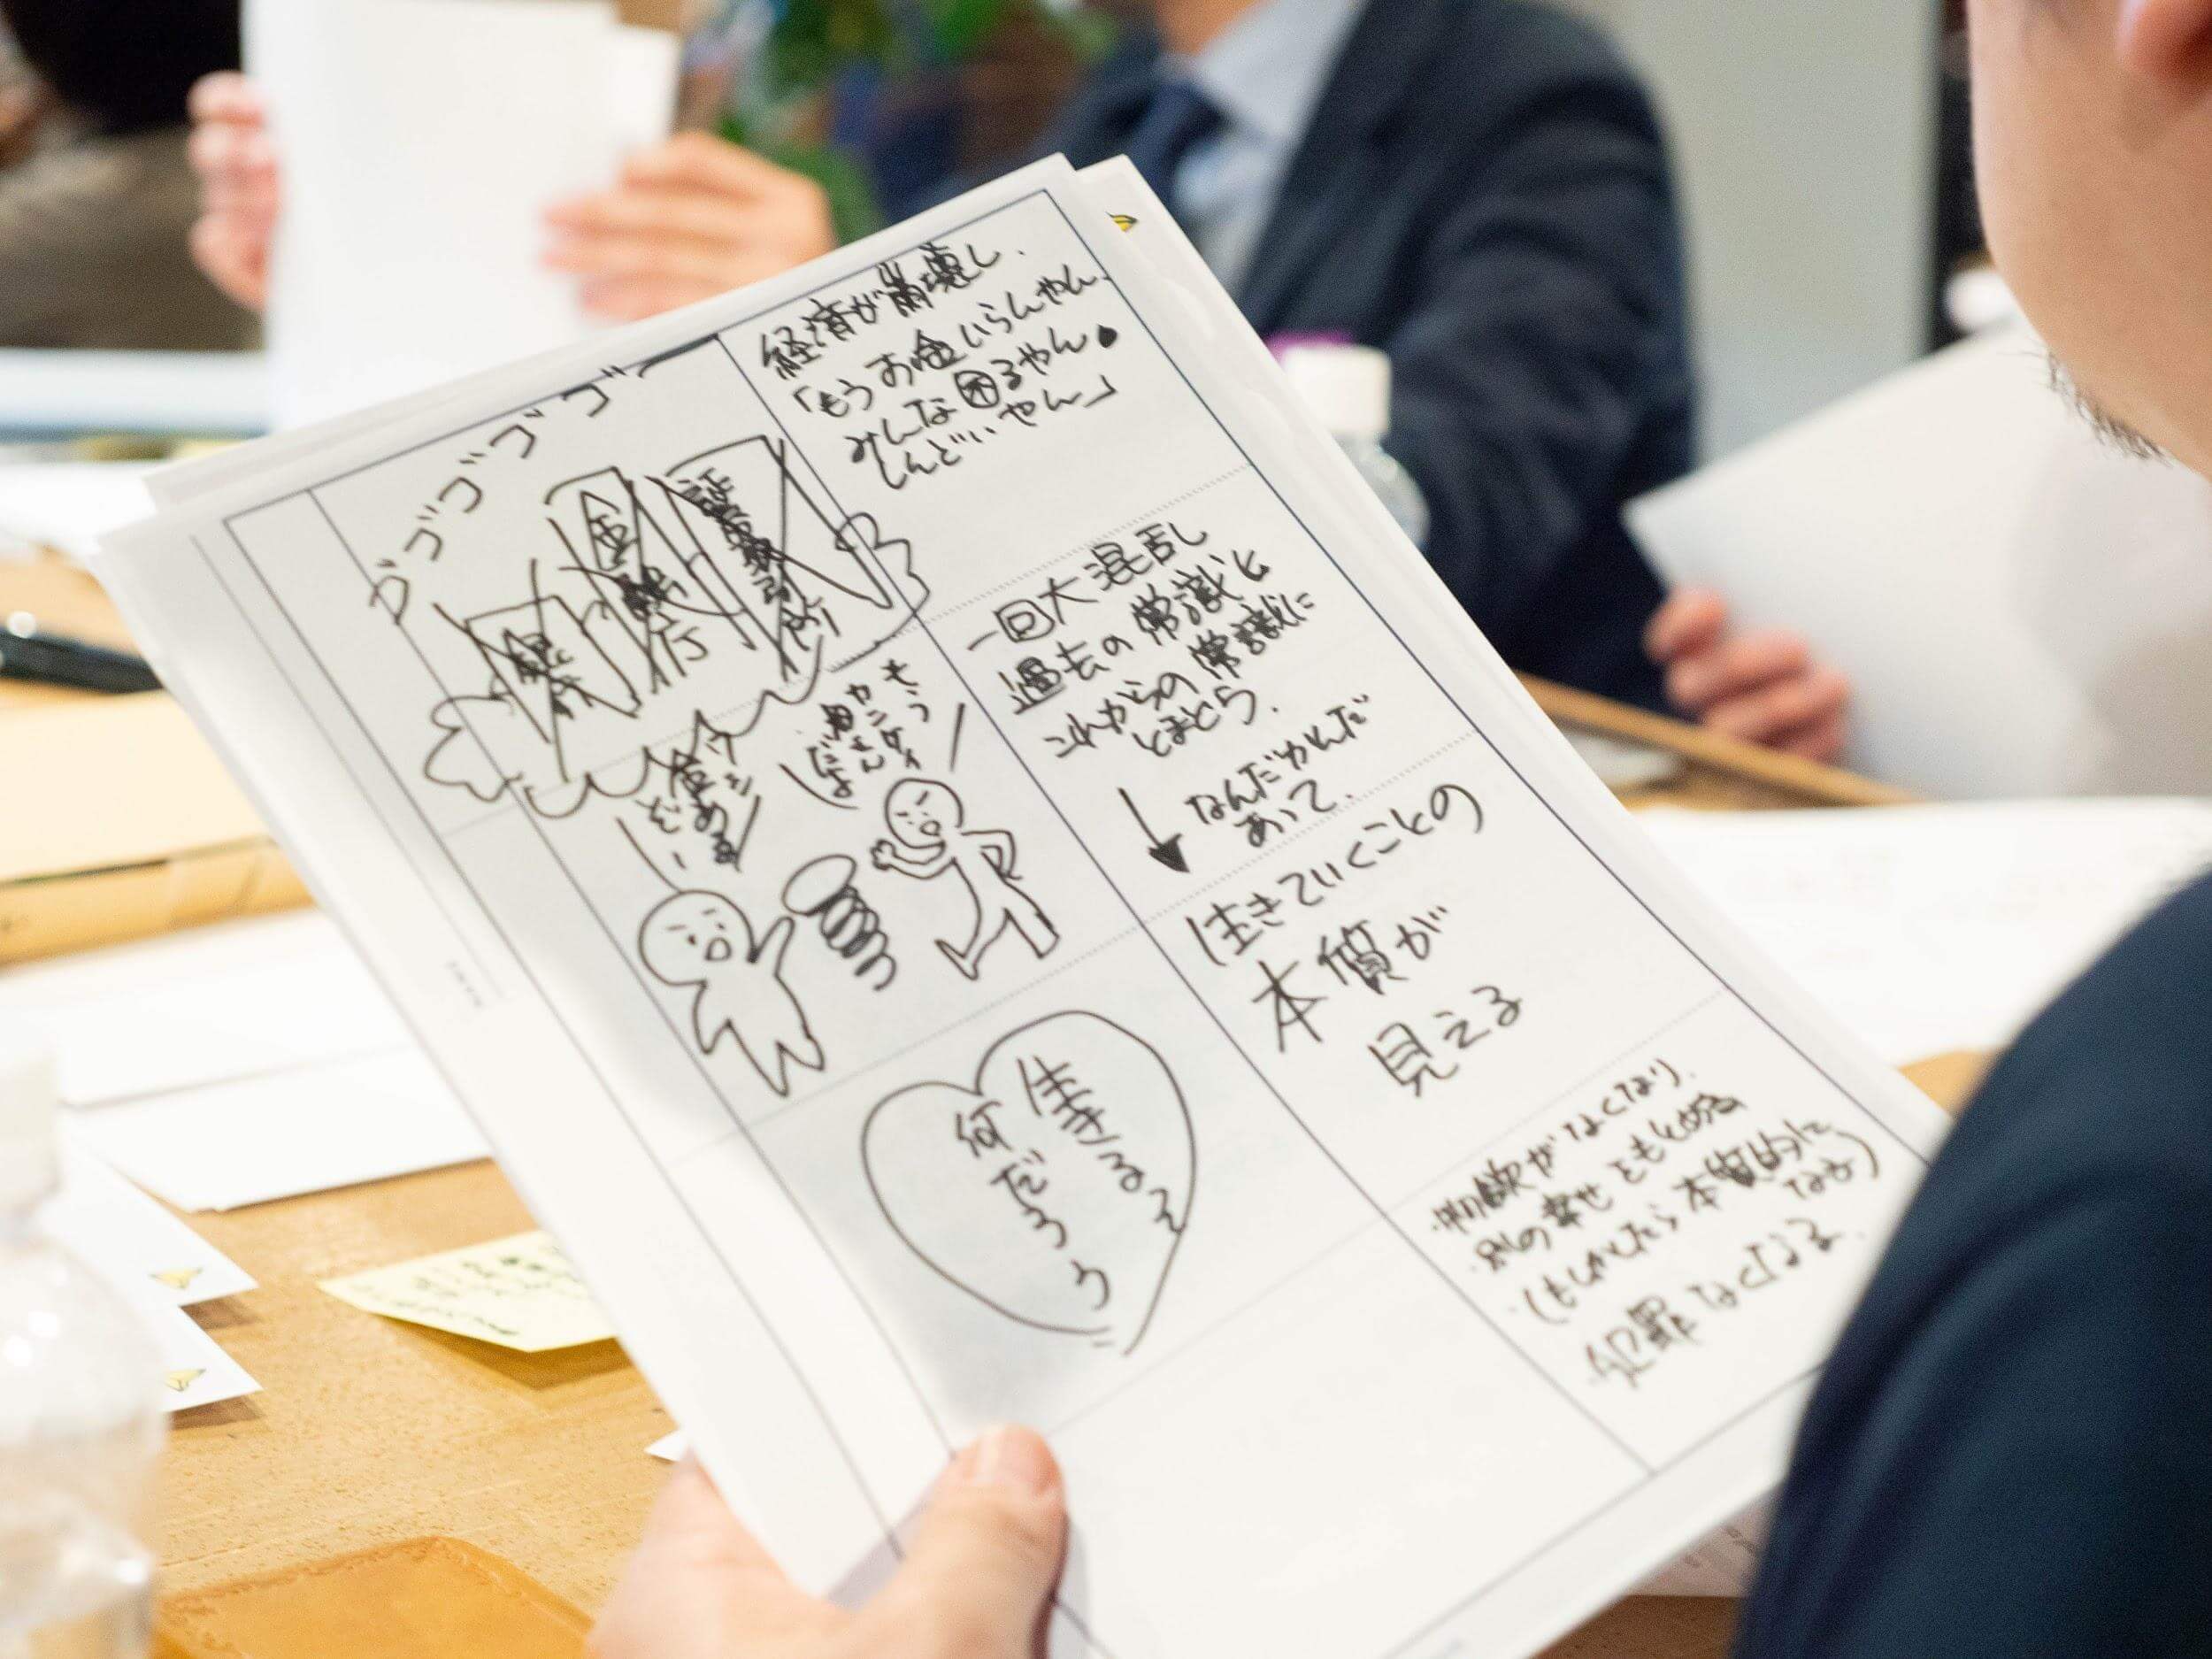 経済が崩壊し、
「もうお金いらんやん、
みんな困るやん。
しんどいやん」
ゴゴゴゴゴゴ
銀行
金融行
証券取引所
一回大混乱し
過去の常識と
これからの常識に
とまどう。
なんだかんだ
あって、
もう
カンケイ
だよ
金
あるぞ
生きていくことの
本質が
見える
生きるって
何だろう
・物欲がなくなり、
・別の幸せともとめる
・(もしかしたら本質的に
なる)
・犯罪なくなる。